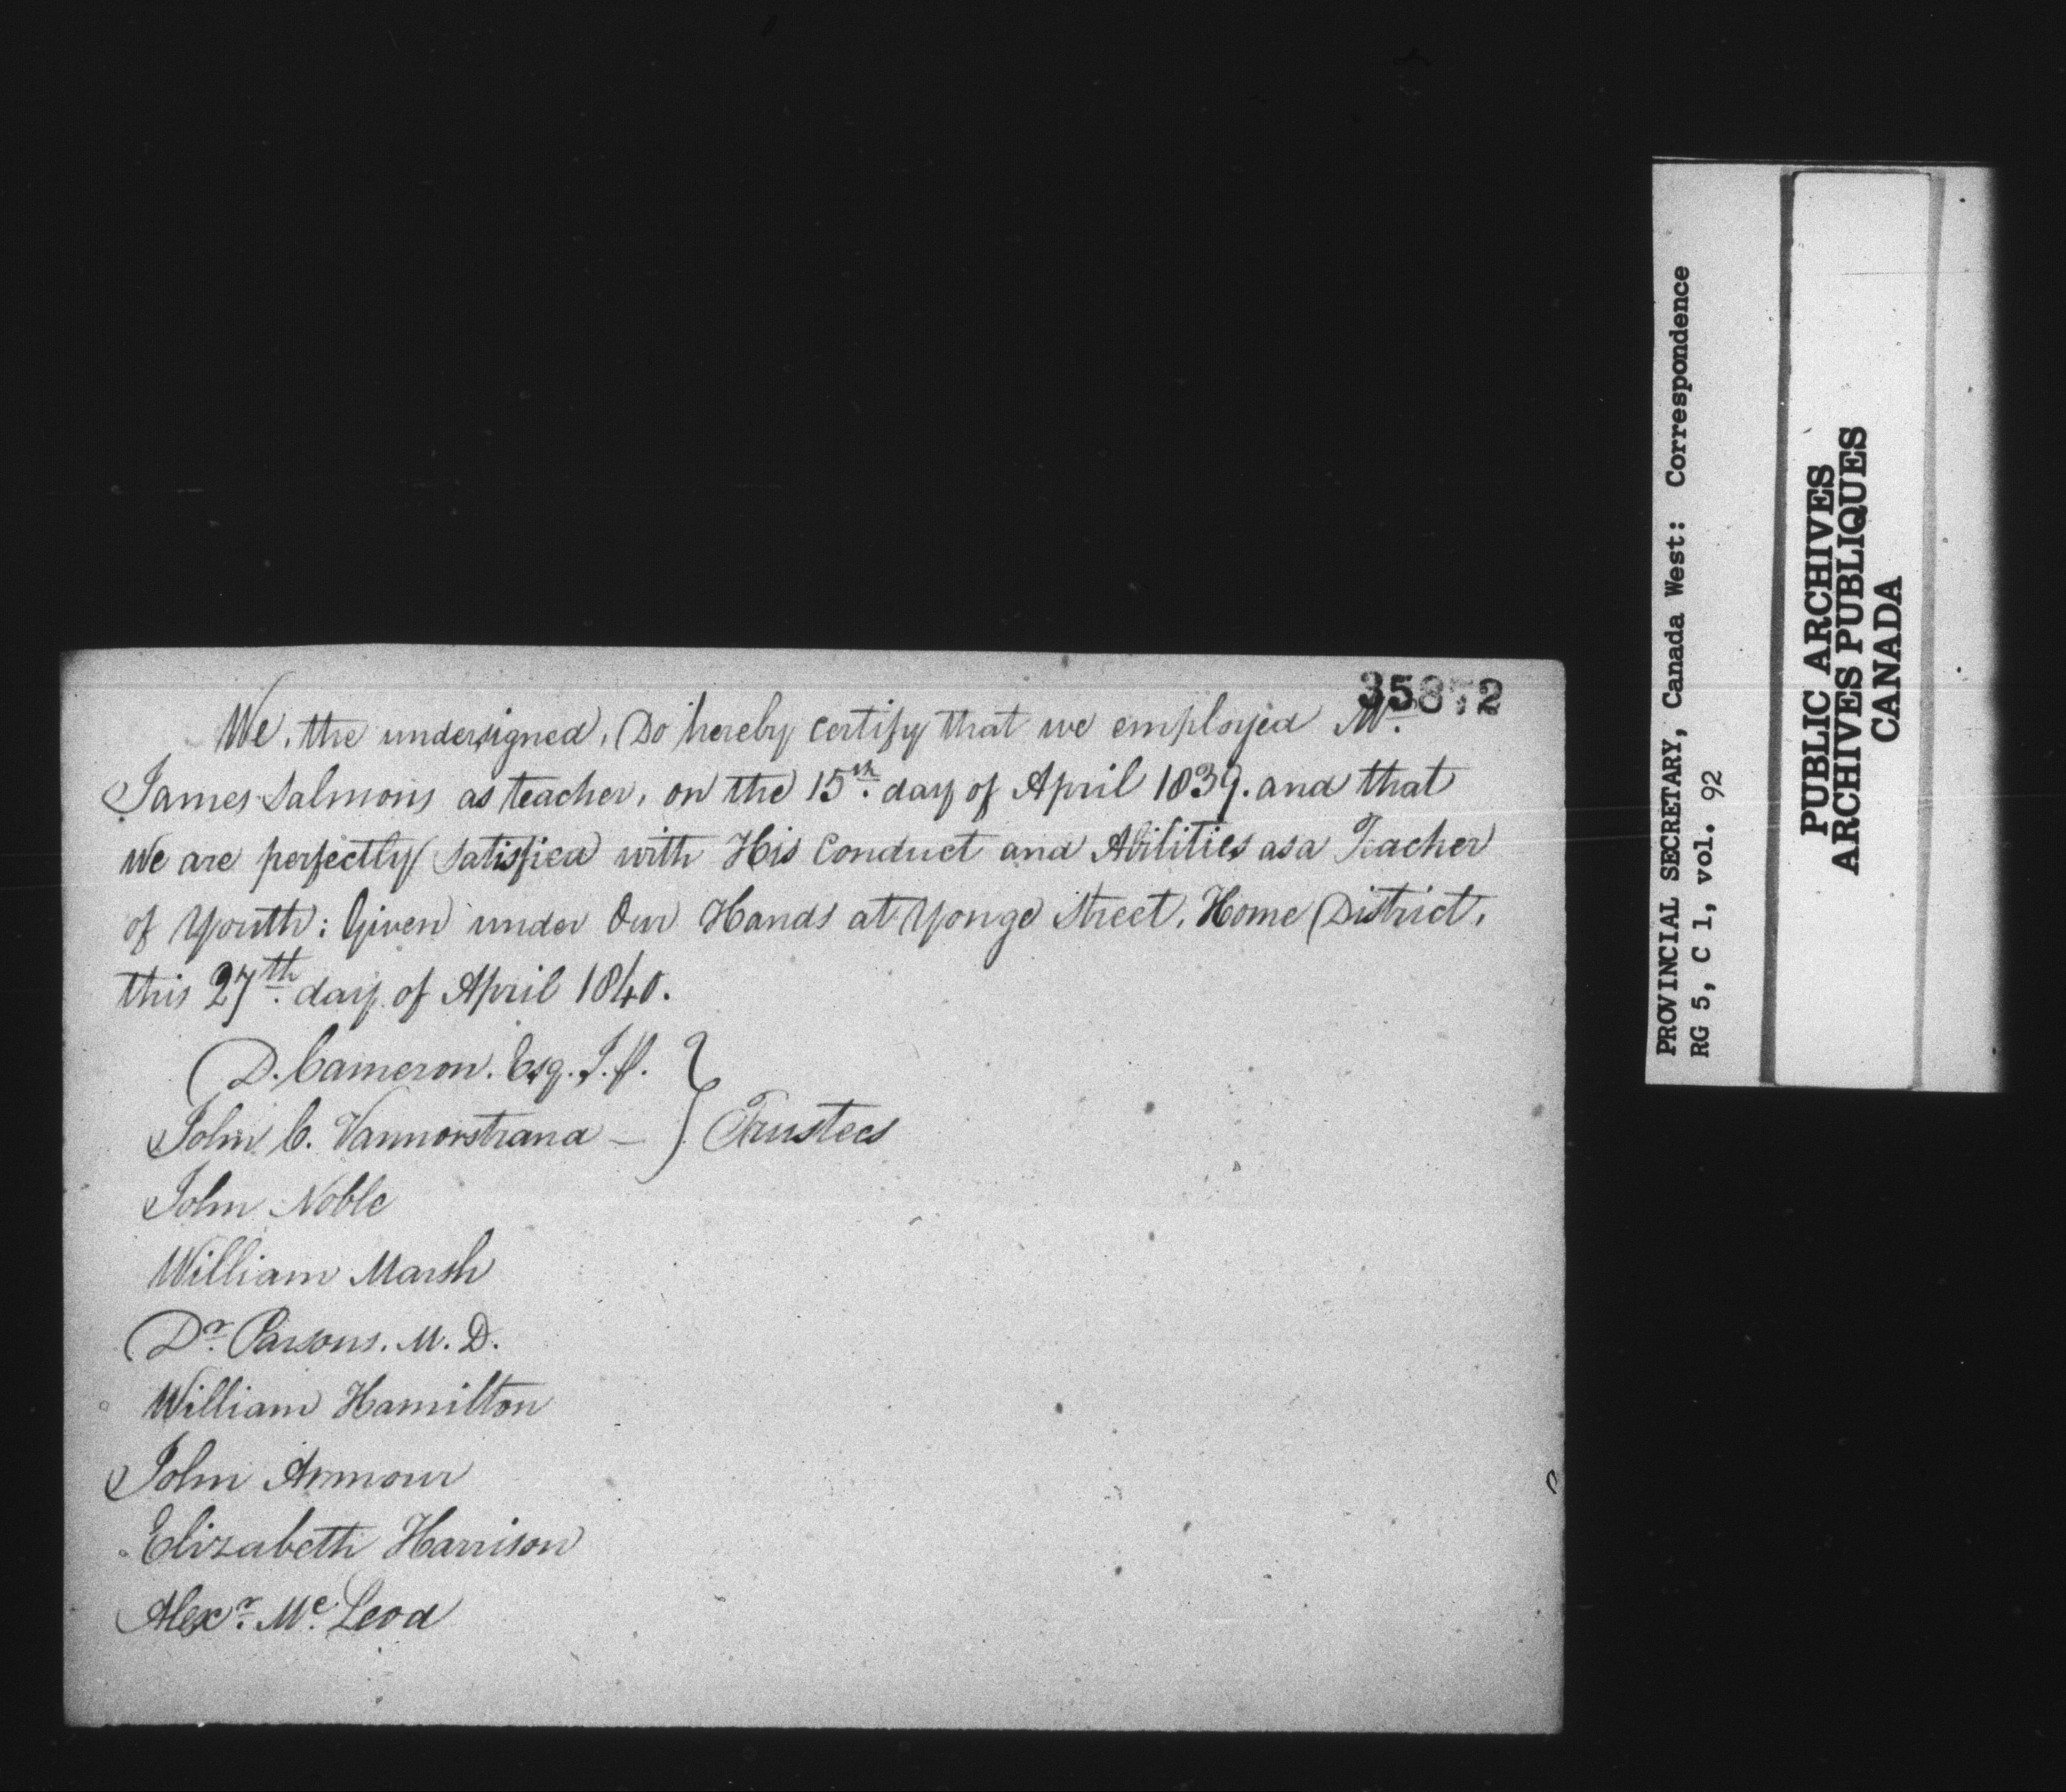 35872
We, the undersigned, Do hereby certify that we employed Mr.
James Salmons as teacher, on the 15th. day of April 1839. and that
We are perfectly satisfied with His Conduct and Abilities as a Teacher
of Youth: Given under Our Hands at Yonge Street, Home District,
this 27th. day of April 1840.
D. Cameron. Esq. J. P.
John C. Vannorstrand — } Trustees
John Noble
William Marsh
Dr. Parsons. M. D.
William Hamilton
John Armour
Elizabeth Harrison
Alexr. Mc. Leod
PROVINCIAL SECRETARY, Canada West: Correspondence
RG 5, C 1, vol. 92
PUBLIC ARCHIVES
ARCHIVES PUBLIQUES
CANADA